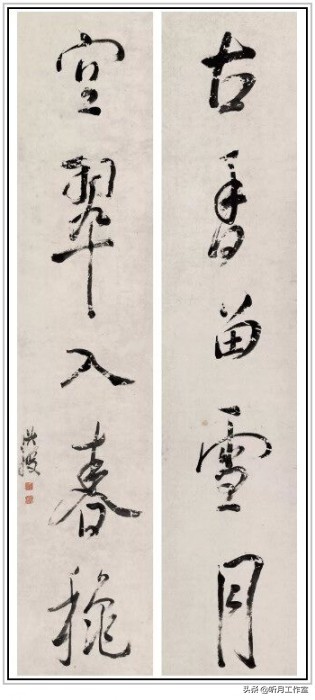 古香留雪月
空翠入春
洪綬
头条 @听月工作室